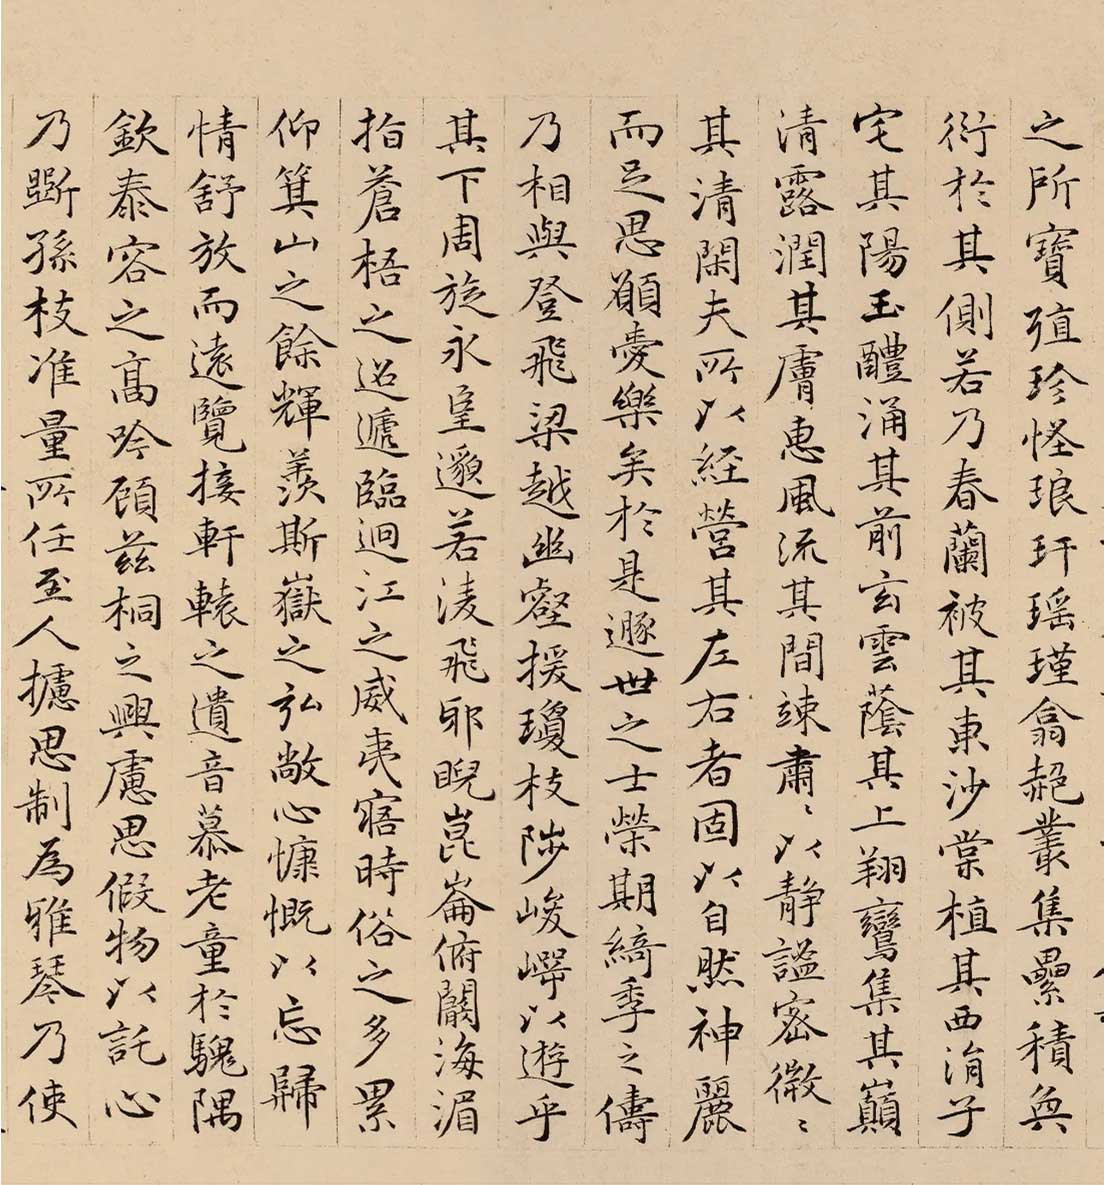 之所寶殖珍怪琅玕瑶瑾翕赩叢集累積奐
衍於其側若乃春蘭被其東沙棠植其西涓子
宅其陽玉醴涌其前玄雲蔭其上翔鸞集其巔
清露潤其膚惠風流其間竦肅〻以静謐密微〻
其清閑夫所以經營其左右者固以自然神麗
而足思願愛樂矣於是遯世之士榮期綺季之儔
乃相與登飛梁越幽壑援瓊枝陟峻崿以遊乎
其下周旋永望邈若淩飛邪睨崑崙俯闞海湄
指蒼梧之迢遞臨迴江之威夷寤時俗之多累
仰箕山之餘輝羨斯嶽之弘敞心慷慨以忘歸
情舒放而遠覽接軒轅之遺音慕老童於騩隅
欽泰容之高吟顧茲桐之興慮思假物以託心
乃斲孫枝准量所任至人攄思制為雅琴乃使